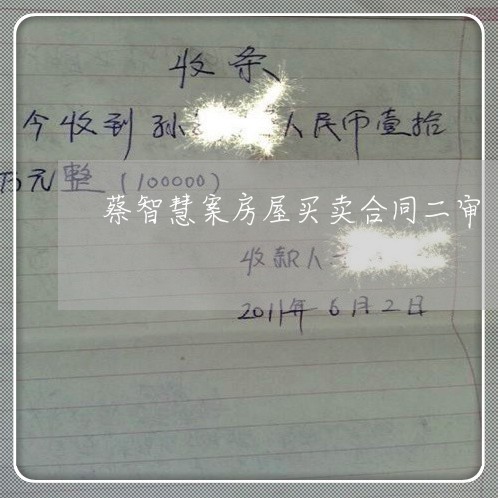 收条
今收到孙 人民币壹拾
万元整(100000)
蔡智慧案房屋买卖合同二审
收款人
2011年6月2日